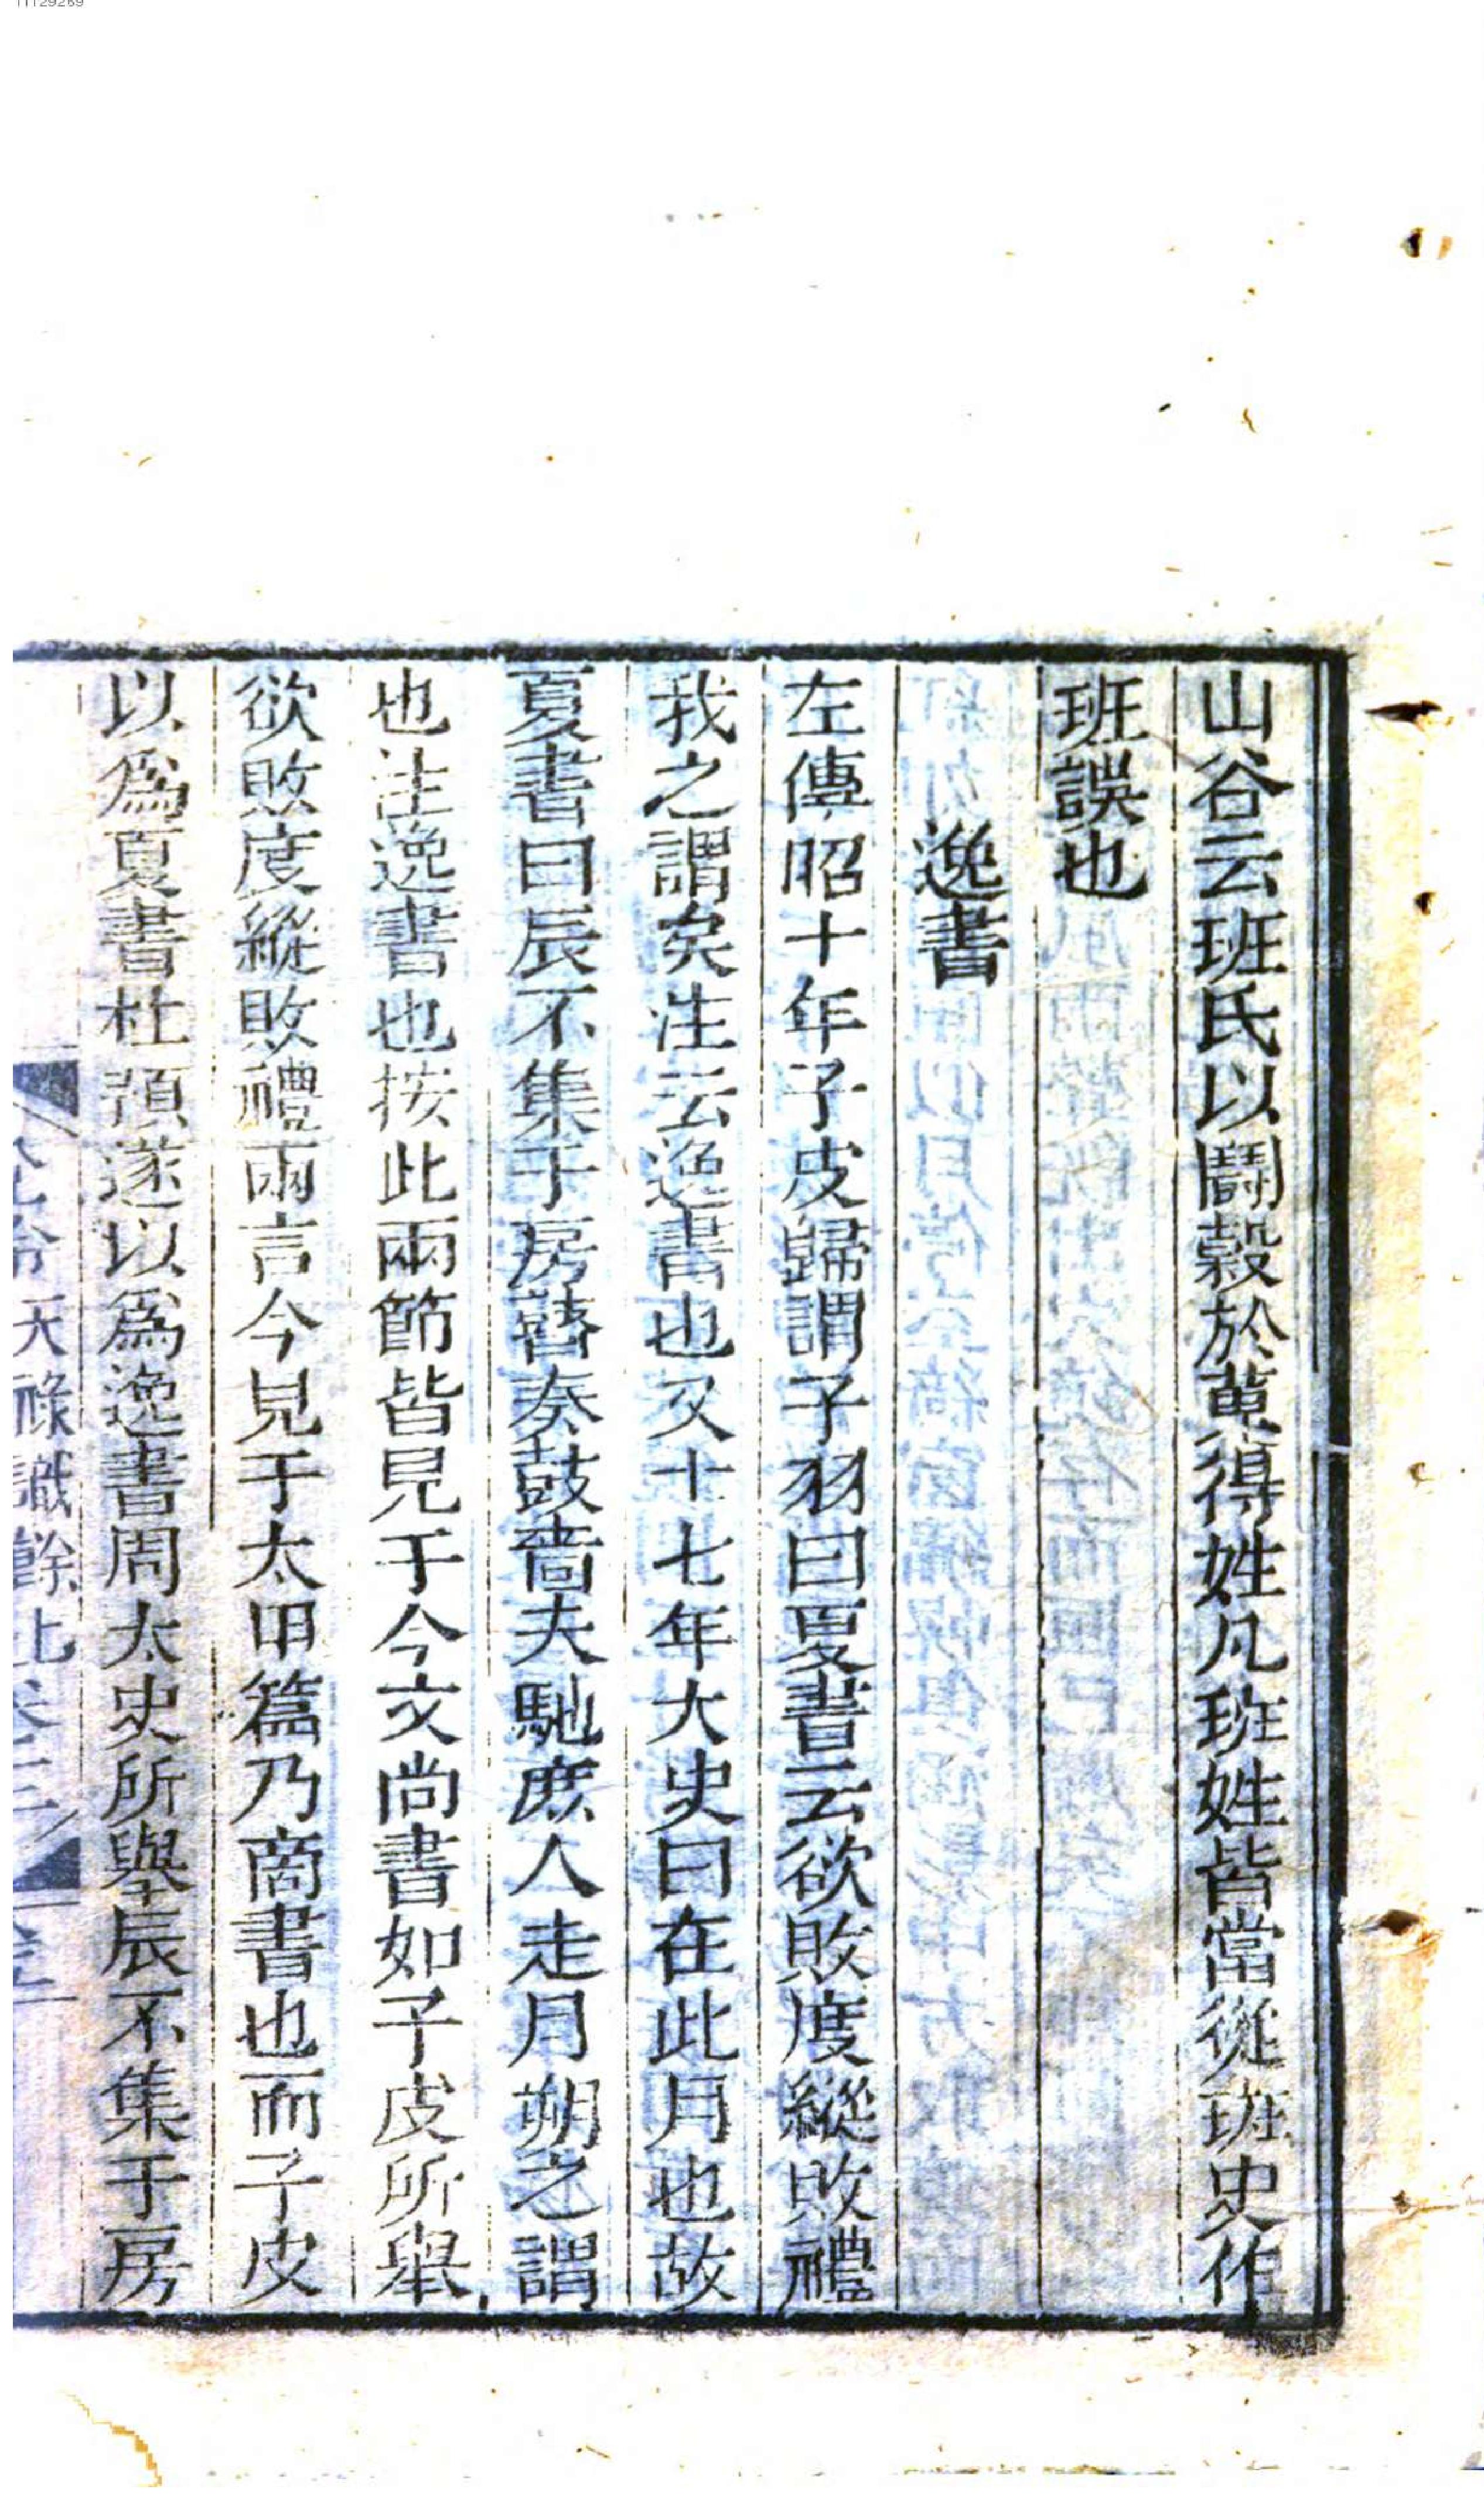 山谷云班氏以鬭穀於菟得姓凡班姓皆當從班史作
班誤也
逸書
左傳昭十年子皮歸謂子羽曰夏書云欲敗度縱敗禮
我之謂矣注云逸書也又十七年大史曰在此月也故
夏書曰辰不集于房瞽奏鼓嗇夫馳庶人走月朔之謂
也注逸書也按此兩節皆見于今文尚書如子皮所舉
欲敗度縱敗禮兩言今見于太甲篇乃商書也而子皮
以為夏書杜預遂以為逸書周太史所舉辰不集于房
天祿識餘